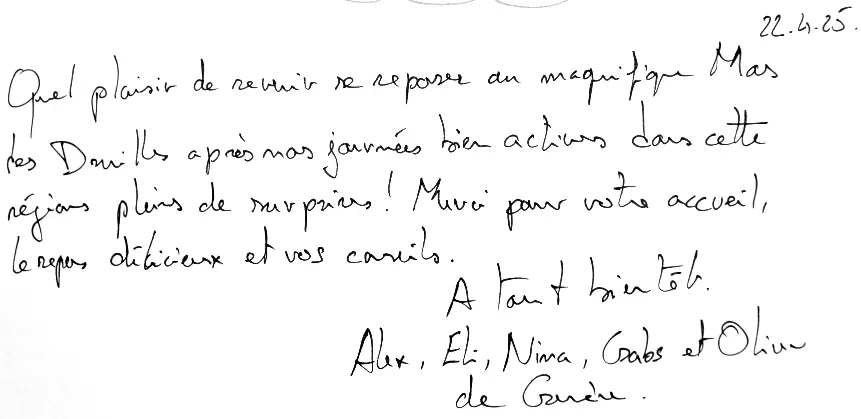 22.4.25.
Quel plaisir de revenir se reposer au magnifique Mas
des Druilles après nos journées bien actives dans cette
régions pleins de surprises! Merci pour votre accueil,
le repas délicieux et vos conseils.
A tout bientôt.
Alex, Eli, Nina, Gabs et Olive
de Genève.